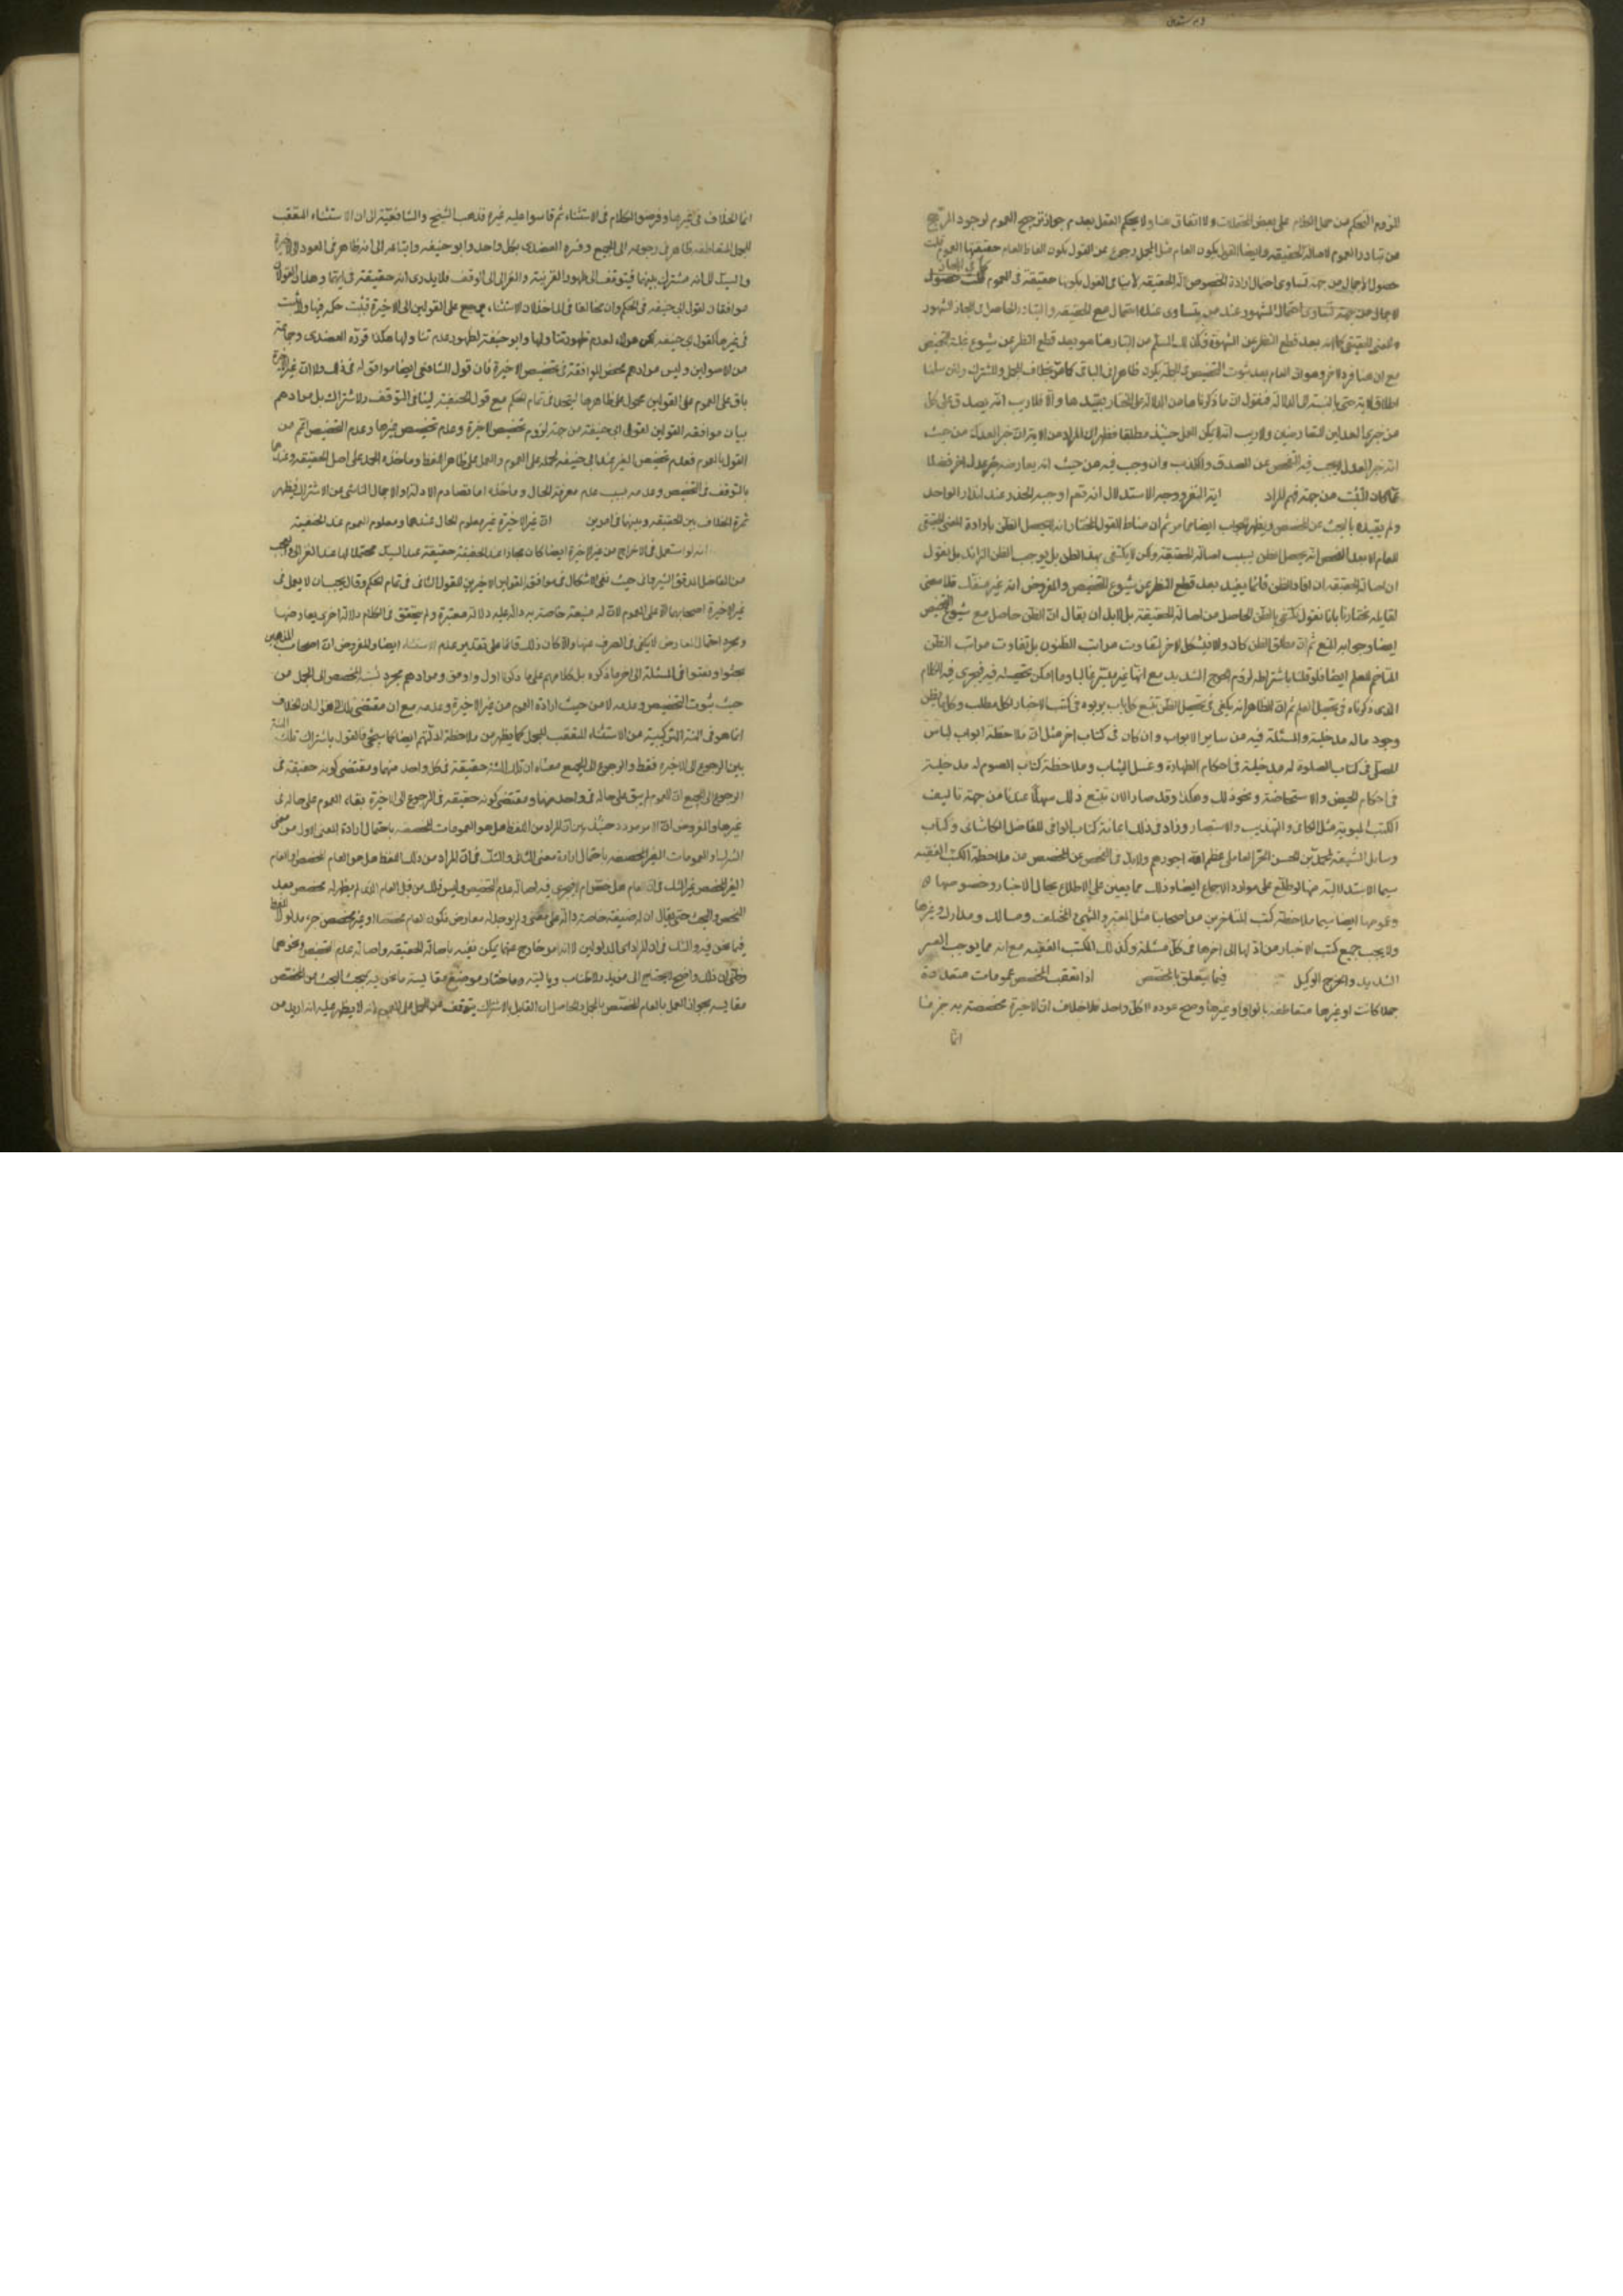 لزوم التحكم من حمل الكلام على بعض المحتملات ولا اتفاق هنا ولا يحكم العقل بعدم جواز ترجيح العموم لوجود المرجح
من تبادر العموم لاصالة الحقيقة وايضا القول بكون العام مثل المجمل رجوع عن القول بكون الفاظ العام حقيقتها العموم قلت
حصول الاجمال من جهة تساوى احتمال ارادة الخصوص الحقيقة لا ينافى القول بكونها حقيقة فى العموم قلت حصول
كما فى المجاز
الاجمال من جهة تساوى احتمال المشهور عند من يتساوى عنده احتماله مع الحقيقة والتبادر الحاصل فى المجاز المشهور
المعنى الحقيقى انه بعد قطع النظر عن الشهرة فكذلك المسلم من التبادر هنا هو بعد قطع النظر عن شيوع غلبة التخصيص
مع ان هنا فردا اخر وهو ان العام بعد ثبوت التخصيص فى الجملة يكون ظاهرا فى الباقى كما مر بخلاف المجمل والمشترك ولئن سلمنا
اطلاق الاية حتى بالنسبة الى الدلالة فنقول ان ما ذكرناها من الدلالة على المختار يقيدها والا فلا ريب انه يصدق على كل
من خبرى العدلين المتعارضين ولا ريب انه لا يمكن العمل حينئذ مطلقا فظهر ان المراد من الاية ان خبر العدل من حيث
انه خبر العدل لا يجب فيه التفحص عن الصدق والكذب وان وجب فيه من حيث انه يعارضه خبر عدل اخر فضلا
عما كان التثبت من جهة فهم المراد اية النفر ووجه الاستدلال انه تعم اوجب الحذر عند انذار الواحد
ولم يقيده بالبحث عن المخصص ويظهر الجواب ايضا مما مر ثم ان مناط القول المختار انه لا يحصل الظن بارادة المعنى الحقيقى
للعام الا بعد الفحص انه يحصل الظن بسبب اصالة الحقيقة ولكن لا يكتفى بهذا الظن بل يوجب الظن الزائد بل نقول
ان اصالة الحقيقة ان افاد الظن فانما يفيد بعد قطع النظر عن شيوع التخصيص والمفروض انه غير منفك فلا معنى
لقابله مختارنا بانا نقول نكتفى بالظن الحاصل من اصالة الحقيقة بل لابد ان يقال ان الظن حاصل مع شيوع التخصيص
ايضا وجوابه المنع ثم ان مطلق الظن كاف والا فيشكل الاخر لتفاوت مراتب الظنون بل تفاوت مراتب الظن
المتاخم للعلم ايضا فلو قلنا باشتراطه لزم الحرج الشديد مع انها غير متيسر غالبا وما امكن تحصيله فيه فيجرى فيه الكلام
الذى ذكرناه فى تحصيل العلم ثم ان الظاهر انه يكفى فى تحصيل الظن تتبع كل باب بوبوه فى كتب الاخبار لكل مطلب وكل ما يظن
وجود ماله مدخلية والمسئلة فيه من ساير الابواب وان كان فى كتاب اخر مثل ان ملاحظة ابواب لباس
المصلى فى كتاب الصلوة له مدخلية فى احكام الطهارة وغسل الثياب وملاحظة كتاب الصوم له مدخلية
فى احكام الحيض والاستحاضة ونحو ذلك وهكذا وقد صار الان تتبع ذلك سهلا عندنا من جهة تاليف
الكتب المبوبة مثل الكافى والتهذيب والاستبصار وزاد فى ذلك اعانة كتاب الوافى للفاضل الكاشانى وكتاب
وسايل الشيعة لمحمد بن الحسن الحر العاملى عظم الله اجورهم ولابد فى التفحص عن المخصص من ملاحظة الكتب الفقهية
سيما الاستدلالية منها لو طلع على موارد الاجماع ايضا وذلك مما يعين على الاطلاع بحال الاخبار وخصوصها
وعمومها ايضا سيما ملاحظة كتب المتاخرين من اصحابنا مثل المعتبر والمنتهى والمختلف ومسالك ومدارك وغيرها
ولا يجب جميع كتب الاخبار من اولها الى اخرها فى كل مسئلة وكذلك الكتب الفقهية مع انه مما يوجب العسر
الشديد والحرج الوكيل فيما يتعلق بالمخصص اذا تعقب المخصص عمومات متعددة
جملا كانت او غيرها متعاطفة بالواو او غيرها وصح عوده الى كل واحد فلا خلاف ان الاخيرة مخصصة به جزما
انما
انما الخلاف فى غيرها وفرضوا الكلام فى الاستثناء ثم قاسوا عليه غيره فذهب الشيخ والشافعية الى ان الاستثناء المتعقب
للجمل المتعاطفة ظاهر فى رجوعه الى الجميع وفسره العضدى بكل واحد وابو حنيفة واتباعه الى انه ظاهر فى العود الى الاخيرة
والسيد الى انه مشترك بينهما فيتوقف الى ظهور القرينة والغزالى الى الوقف فلا يدرى انه حقيقة فى ايهما وهذان القولان
موافقان لقول ابى حنيفة فى الحكم وان خالفا فى الماخذ لان الاستثناء يرجع على القولين الى الاخيرة فيثبت حكمه فيها ولا يثبت
فى غيرها كقول ابى حنيفة لكن هؤلاء لعدم ظهور تناولها وابو حنيفة لظهور عدم تناولها هكذا قرره العضدى وجماعة
من الاصولين وليس مرادهم محض الموافقة فى تخصيص الاخيرة فان قول الشافعى ايضا موافق له فى ذلك ولا ان غير الاخيرة
باق على العموم على القولين محمول على ظاهرها ليتحد فى تمام الحكم مع قول الحنفية لينافى التوقف والاشتراك بل مرادهم
بيان موافقة القولين لقول ابى حنيفة من جهة لزوم تخصيص الاخيرة وعدم تخصيص غيرها وعدم التخصيص اعم من
القول بالعموم فعدم تخصيص الغير عند ابى حنيفة لحمله على العموم والعمل على ظاهر اللفظ وماخذه الحمل على اصل الحقيقة وعندهما
بالتوقف فى التخصيص وعدمه بسبب عدم معرفة الحال وماخذه اما تصادم الادلة او الاجمال الناشى عن الاشتراك فيظهر
ثمرة الخلاف بين الحنفية وبينهما فى امرين ان غير الاخيرة غير معلوم الحال عندهما ومعلوم العموم عند الحنفية
انه لو استعمل فى الاخراج من غير الاخيرة ايضا كان مجازا عند الحنفية حقيقة عند السيد محتملا لها عند الغزالى والعجب
من الفاضل المدقق الشيروانى حيث نفى الاشكال فى موافقة القولين الاخرين للقول الثانى فى تمام الحكم وقال يجب ان لا يعمل فى
غير الاخيرة اصحابهما الا على العموم لان له صيغة خاصة به دالة عليه دلالة معتبرة ولم يتحقق فى الكلام دلالة اخرى يعارضها
ومجرد احتمال المعارض لا يكفى فى الصرف عنها والا كان ذلك قائما على تقدير عدم الاستثناء ايضا والمفروض ان اصحاب المذهبين
بحثوا وفتشوا فى المسئلة الى اخر ما ذكره بل كلامهم على ما ذكرنا اول واوفق ومرادهم مجرد نسبة المخصص الى الجمل من
حيث ثبوت التخصيص وعدمه لا من حيث ارادة العموم من غير الاخيرة وعدمه مع ان مقتضى ذلك القول ان الخلاف
انما هو فى الهيئة التركيبية من الاستثناء المتعقب للجمل كما يظهر من ملاحظة ادلتهم ايضا كما سيجىء فالقول باشتراك تلك الهيئة
بين الرجوع الى الاخيرة فقط والرجوع الى الجميع معناه ان تلك الهيئة حقيقة فى كل واحد منهما ومقتضى كونه حقيقة فى
الرجوع الى الجميع ان العموم لم يبق على حاله فى واحد منها ومقتضى كونه حقيقة فى الرجوع الى الاخيرة بقاء العموم على حاله فى
غيرها والمفروض ان الامر مردد حينئذ بين ان المراد من اللفظ هل هو العمومات المخصصة باحتمال ارادة المعنى الاول من معنى
المشترك او العمومات الغير المخصصة باحتمال ارادة معنى الثانى والشك فى ان المراد من ذلك اللفظ هل هو العام المخصص او العام
الغير المخصص غير الشك فى ان العام هل خص ام لا فيجرى فيه اصالة عدم التخصيص وليس ذلك من قبيل العام الذى لم يظهر له مخصص بعد
الفحص والبحث حتى يقال ان له صيغة خاصة دالة على معنى ولم يوجد له معارض فكون العام مخصصا او غير مخصص جزء مدلول اللفظ
فيما نحن فيه والشك فى ان المراد اى المدلولين لا انه امر خارج عنهما يمكن نفيه باصالة الحقيقة واصالة عدم التخصيص ونحوهما
وظنى ان ذلك واضح لا يحتاج الى مزيد الاطناب وما اختاره موضع مقايسة ما نحن فيه بمبحث البحث عن المخصص
مقايسة بجواز العمل بالعام المخصص بالمجمل والحاصل ان القايل بالاشتراك يتوقف عن الحمل على العموم لانه لا يظهر عليه انه اريد من